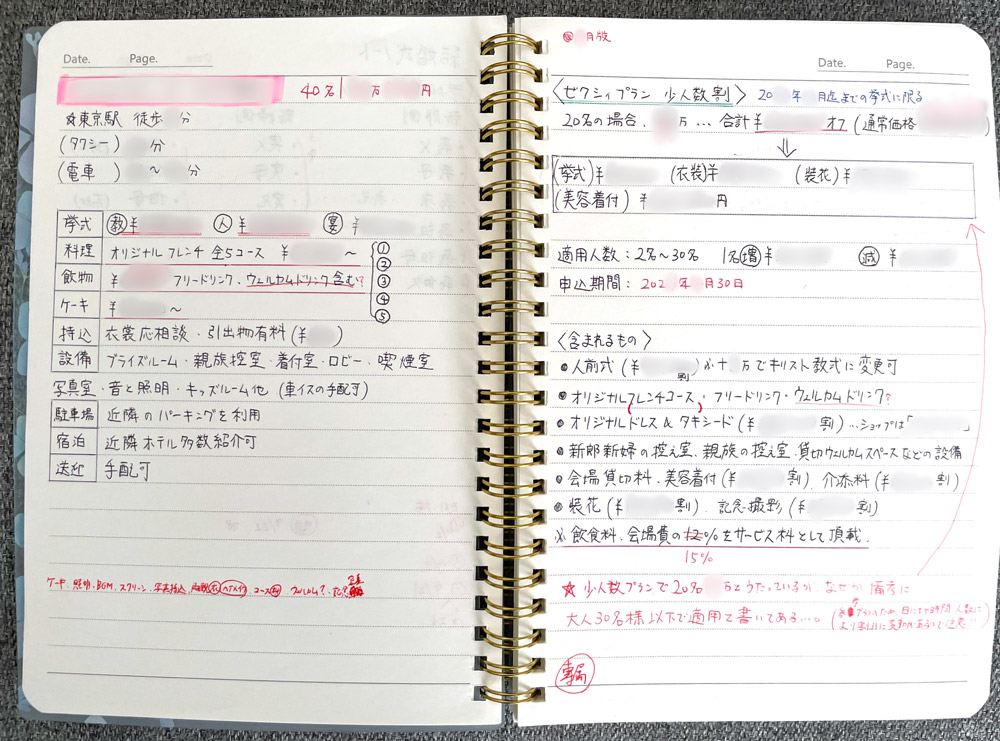 Date. Page.
40名 万 円
☆東京駅 徒歩 分
(タクシー) 分
(電車) ～ 分
挙式 教 ¥ 人 ¥ 宴 ¥
料理 オリジナルフレンチ 全5コース ¥ ～ ①
②
飲物 ¥ フリードリンク、ウェルカムドリンク含む? ③
④
ケーキ ¥ ～ ⑤
持込 衣裳応相談・引出物有料(¥ )
設備 ブライズルーム・親族控室・着付室・ロビー・喫煙室
写真室・音と照明・キッズルーム他 (車イスの手配可)
駐車場 近隣のパーキングを利用
宿泊 近隣ホテル多数紹介可
送迎 手配可
ケーキ、照明・BGM、スクリーン、
月版
Date. Page.
〈ゼクシィプラン 少人数割〉 20 年 月迄までの挙式に限る
20名の場合、 万…合計¥ オフ (通常価格
⇓
(挙式)¥ (衣装)¥ (装花)¥
(美容着付) ¥ 円
適用人数：2名～30名 1名 増 ¥ 減 ¥
申込期間：202 年 月30日
〈含まれるもの〉
●人前式 (¥ 割) が+ 万でキリスト教式に変更可
●オリジナルフレンチコース・フリードリンク・ウェルカムドリンク?
●オリジナルドレス&タキシード(¥ 割)…ショップは「 」
●新郎新婦の控え室、親族の控え室、貸切ウェルカムスペースなどの設備
●会場貸切料、美容着付(¥ 割)、介添料(¥ 割)
●装花(¥ 割)、記念撮影(¥ 割)
※飲食料、会場費の12%をサービス料として頂戴。
15%
☆少人数プランで20名 万とうたっているが、なぜか備考に
大人30名様以下で適用と書いてある…。